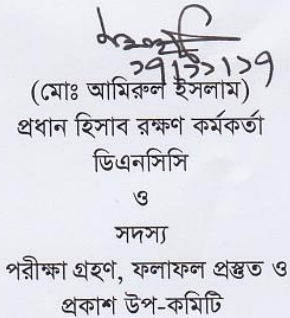 ২৭/১১/১৭
(মোঃ আমিরুল ইসলাম)
প্রধান হিসাব রক্ষণ কর্মকর্তা
ডিএনসিসি
ও
সদস্য
পরীক্ষা গ্রহণ, ফলাফল প্রস্তুত ও
প্রকাশ উপ-কমিটি